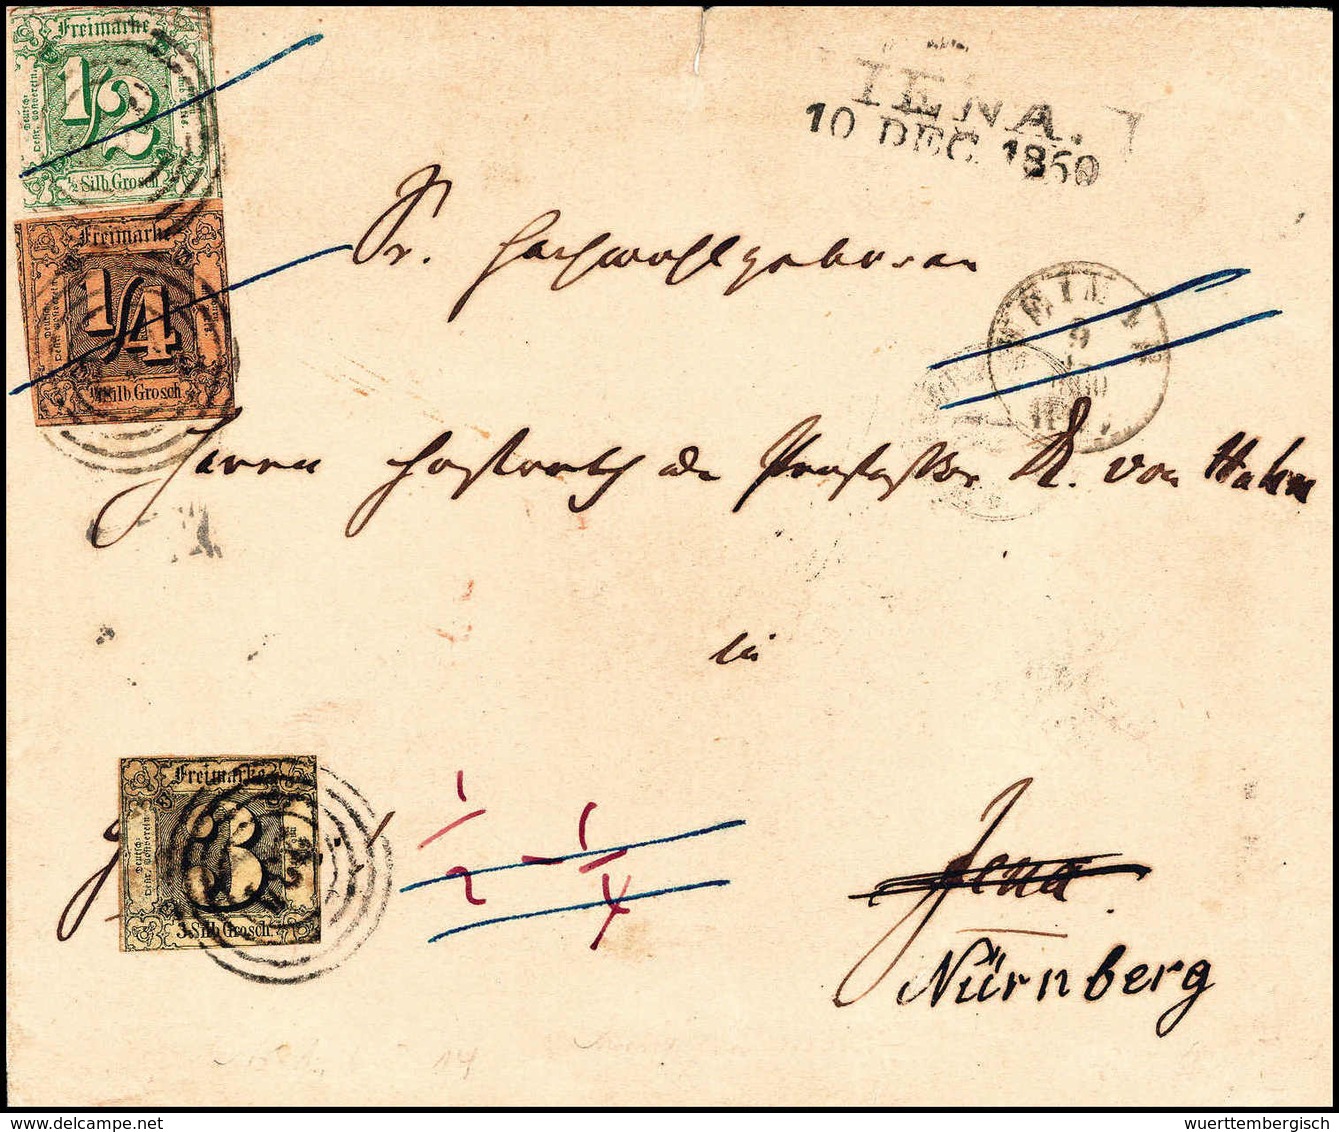 Freimarke
Deutsch-
Oestr. Postverein
1/2
½ Silb. Grosch
IENA.
10 DEC. 1860
Freimarke
1/4
¼ Silb. Grosch
Sr. Hochwohlgeboren
WEIMAR
9
1860
Herrn Hofrath u. Professor K. von Hahn
in
Freimarke
Deutsch-
Oestr. Postverein
3
3 Silb. Grosch.
1/2 - 1/4
Jena
Nürnberg
14
delcampe.net
wuerttembergisch